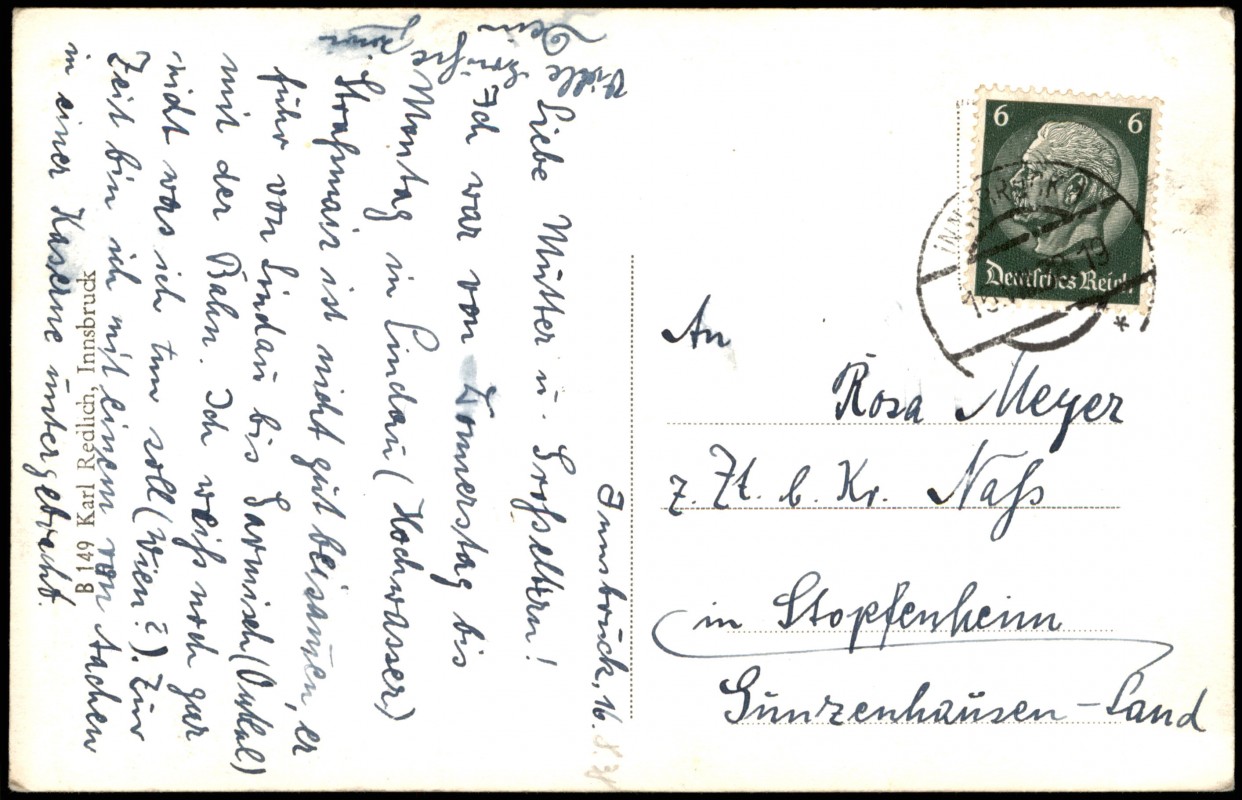 Innsbruck, 16. 8. 38
Liebe Mutter u. Großeltern!
Ich war von Donnerstag bis
Montag in Lindau (Hochwasser)
Straßmair ist nicht gut beisamen, er
fuhr von Lindau bis Garmisch (Onkel)
mit der Bahn. Ich weiß noch gar
nicht was ich tun soll (Wien?). Zur
Zeit bin ich mit einem von Aachen
in einer Kaserne untergebracht.
Viele Grüße
Dein
B 149 Karl Redlich, Innsbruck
6 6
Deutsches Reich
INNSBRUCK
An
Rosa Meyer
z. Zt. b. Kr. Naß
in Stopfenheim
Gunzenhausen-Land